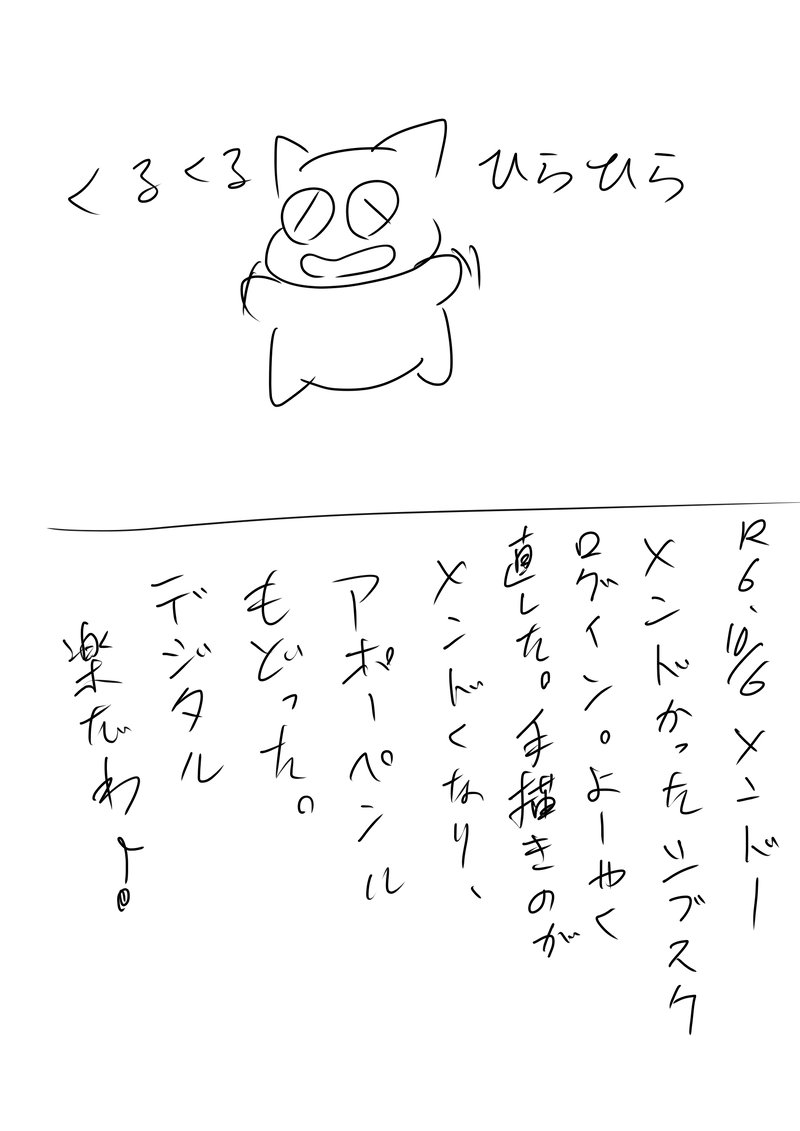 くるくる
ひらひら
R6、10/6 メンドー
メンドかったサブスク
ログイン。よーやく
直した。手描きのが
メンドくなり、
アポーペンシル
もどった。
デジタル
楽だわー。